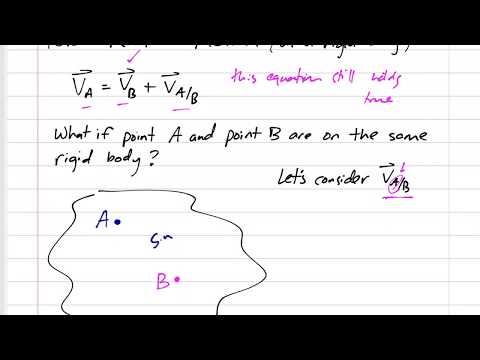 V_A = V_B + V_A/B
this equation still holds
true
What if point A and point B are on the same
rigid body?
Let's consider V_A/B
A
B